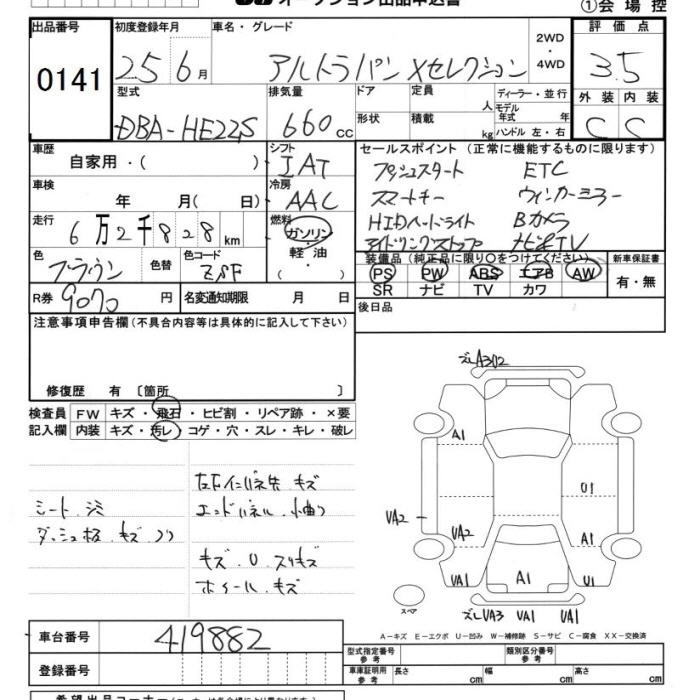 ①会場控
出品番号 初度登録年月 車名・グレード 2WD・4WD 評価点
0141 25 6月 アルトラパン Xセレクション 3.5
型式 排気量 ドア 定員 人 ディーラー・並行 外装 内装
DBA-HE22S 660cc 形状 積載 kg モデル年式 年 ハンドル 左・右 C C
車歴 自家用・( ) シフト IAT セールスポイント (正常に機能するものに限ります)
車検 年 月( 日) 冷房 AAC プッシュスタート ETC
スマートキー ウィンカーミラー
走行 6万2千828km 燃料 ガソリン・軽油・( ) HIDヘッドライト Bカメラ
アイドリングストップ ナビ&TV
色 ブラウン 色替 色コード ZSF 装備品 (純正品に限り○をつけてください) 新車保証書
PS PW ABS エアB AW 有・無
SR ナビ TV カワ
R券 9070円 名変通知期限 月 日 後日品
注意事項申告欄 (不具合内容等は具体的に記入して下さい)
修復歴 有 〔箇所 〕
検査員 FW キズ・飛石・ヒビ割・リペア跡・×要
記入欄 内装 キズ・汚レ・コゲ・穴・スレ・キレ・破レ
シート.シミ
ダッシュ板.キズ.
左右インパネ先 キズ
エンドパネル.小曲り
キズ.U.スリキズ
ホイール.キズ
ズレA3 A1 U1 VA2 VA2 A1 VA1 A1 U1
スペア ズレVA3 VA1 VA1
A-キズ E-エクボ U-凹み W-補修跡 S-サビ C-腐食 XX-交換済
車台番号 419882
登録番号
型式指定番号 参考 類別区分番号 参考
車庫証明用 参考 長さ cm 幅 cm 高さ cm